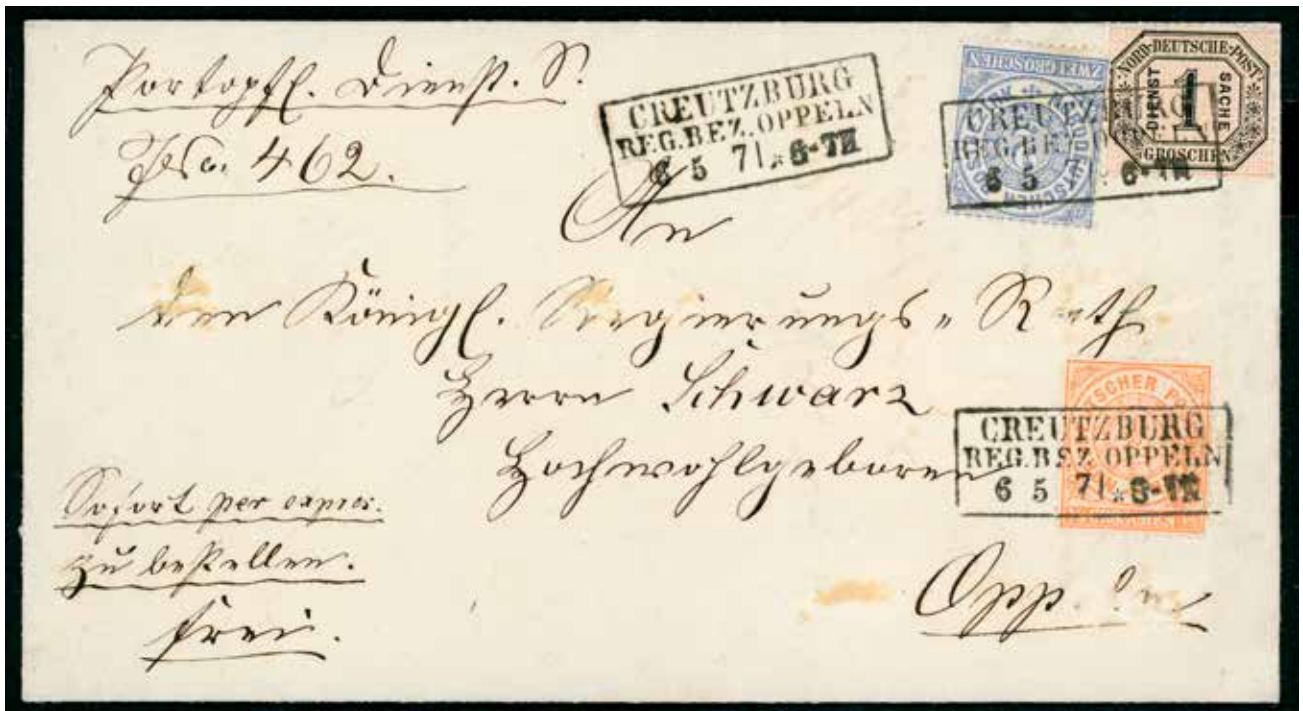 Portopfl. Dienst. S.
JNo. 462.
CREUTZBURG
REG.BEZ.OPPELN
6 5 71 * 6-7N
ZWEI GROSCHEN
NORDDEUTSCHER
CREUTZBURG
REG.BEZ.OPPELN
6 5 6-7N
NORD-DEUTSCHE-POST
DIENST 1 SACHE
GROSCHEN
An
den Königl. Regierungs- Rath
Herrn Schwarz
Hochwohlgeboren
CREUTZBURG
REG.BEZ.OPPELN
6 5 71 * 6-7N
Sofort per express.
zu bestellen.
frei.
Oppeln